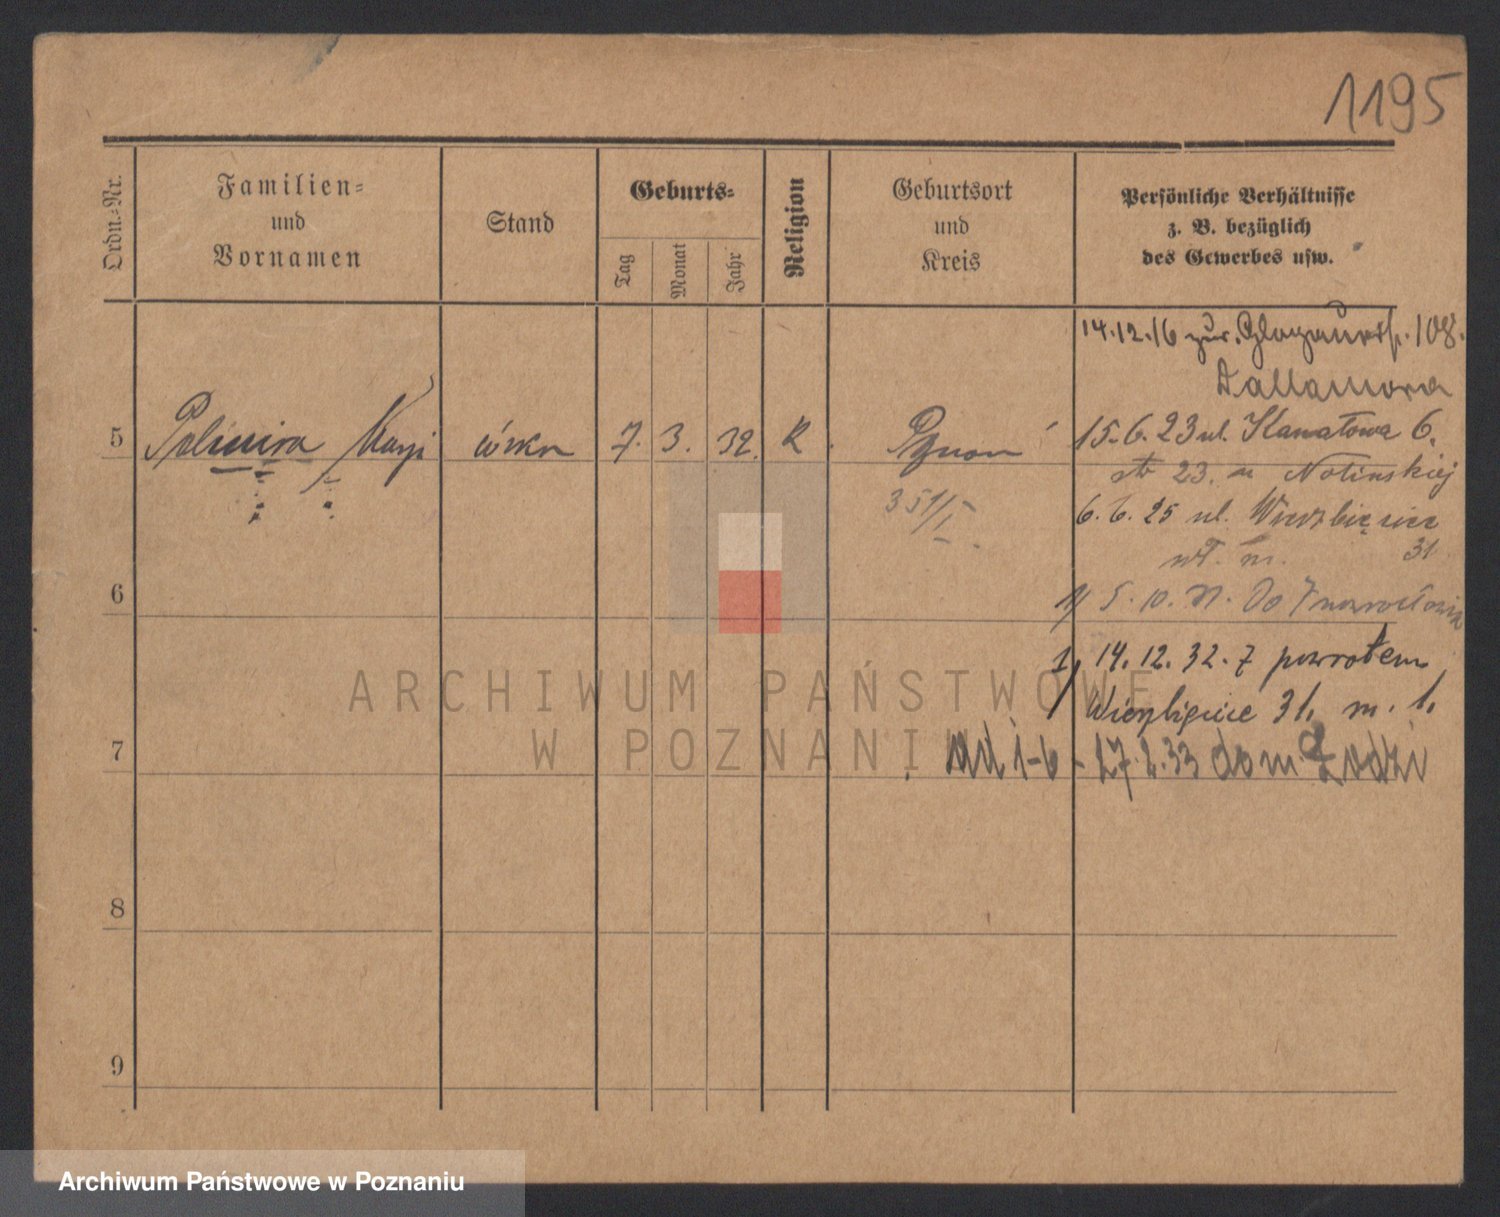 1195
Ordn.-Nr.
Familien-
und
Vornamen
Stand
Geburts-
Tag
Monat
Jahr
Religion
Geburtsort
und
Kreis
Persönliche Verhältnisse
z. B. bezüglich
des Gewerbes usw.
14.12.16 zur. 108.
5
córka
7.
3.
32.
R.
Poznań
15.6.23 ul. Kanałowa 6.
23. u
351/I
6.6.25 ul. Wierzbięcice
31
6
1/ 5.10. Do
1, 14.12.32. z powrotem
ARCHIWUM PAŃSTWOWE
Wierzbięcice 31, m. 1.
W POZNANIU
7
ad 1-6 - 27.2.33 do m. Łodzi
8
9
Archiwum Państwowe w Poznaniu